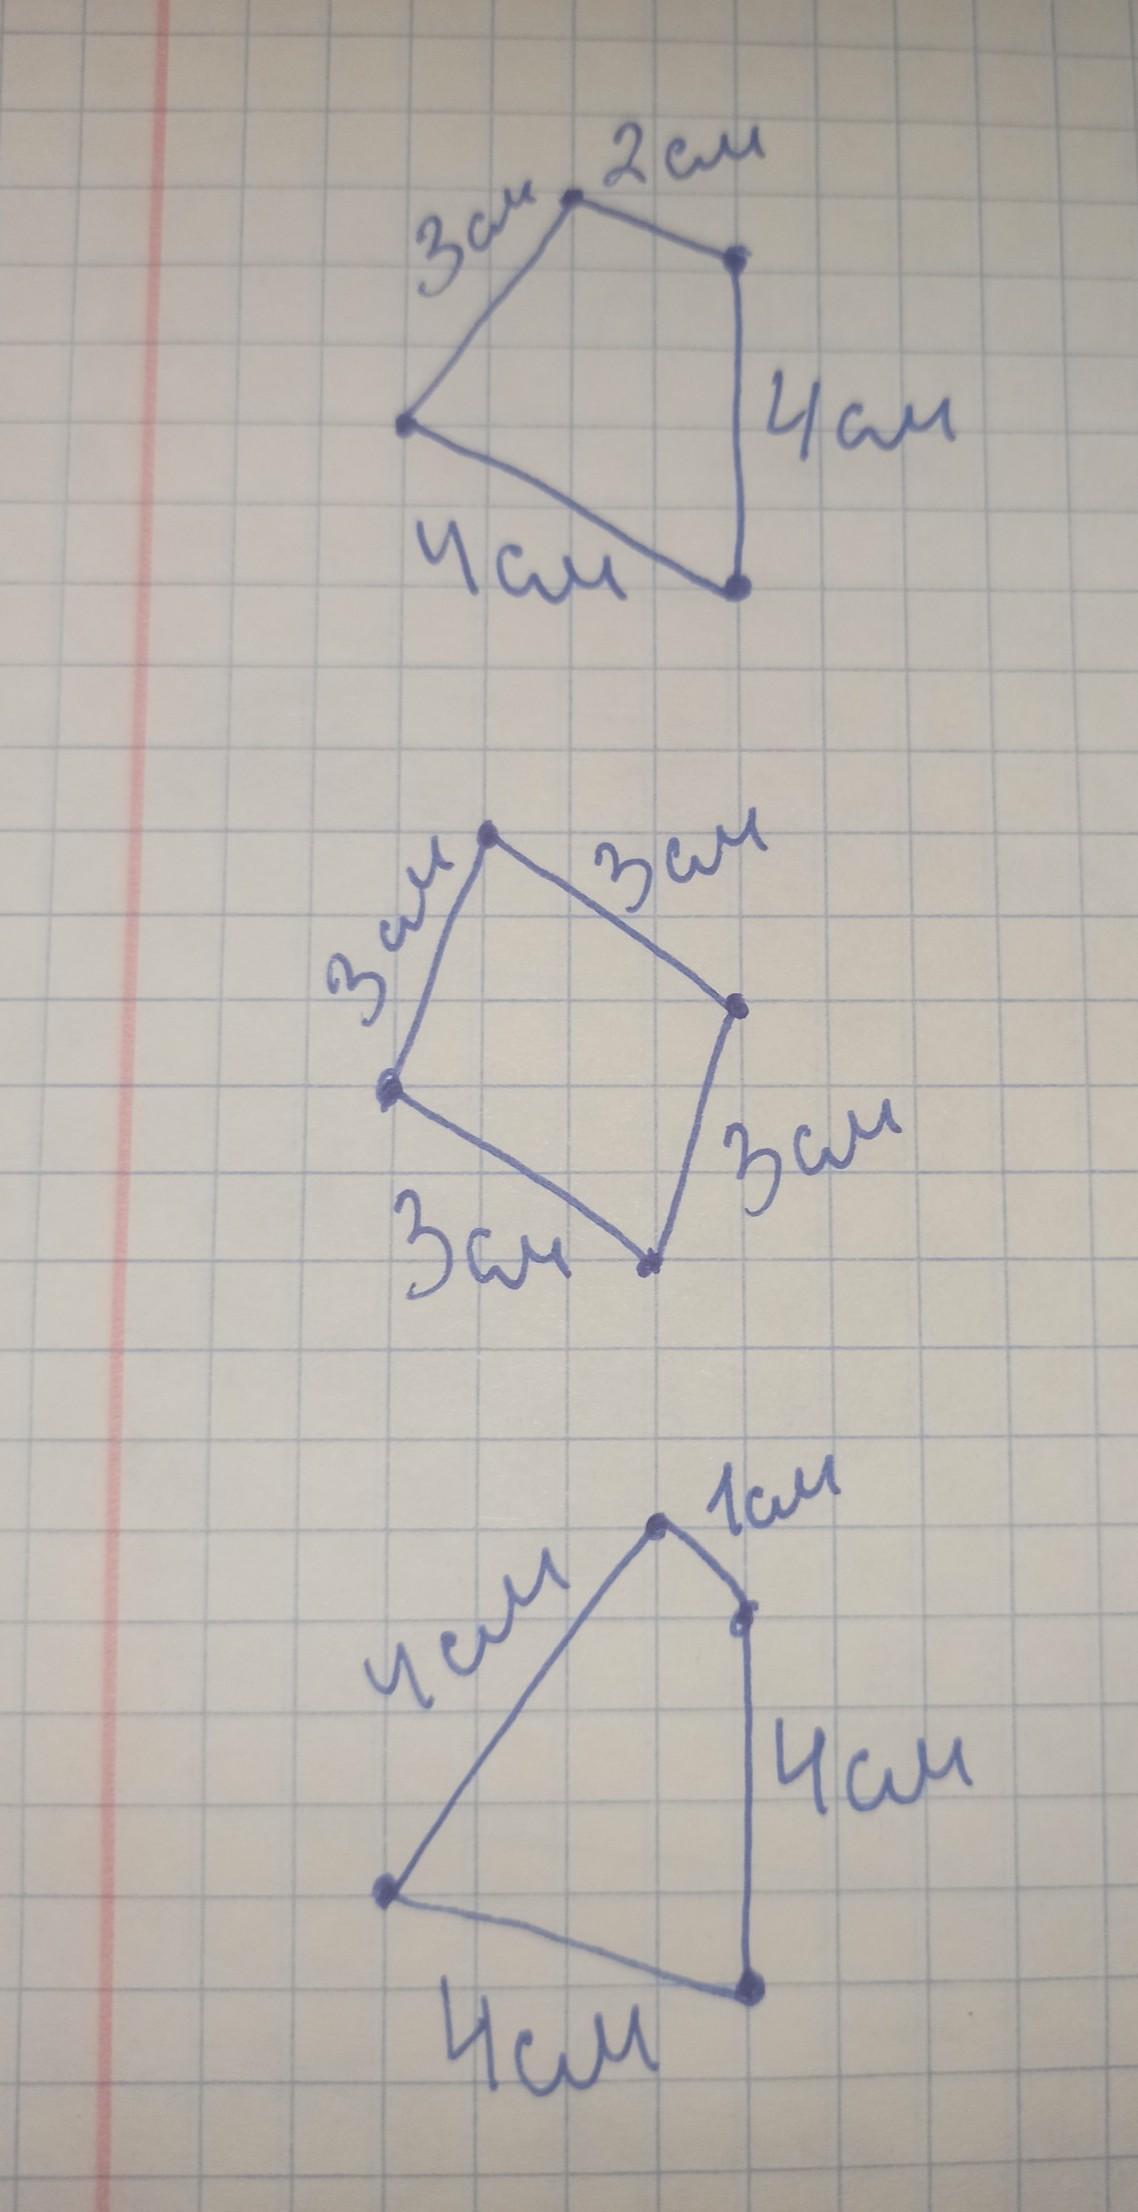 2см
3см
4см
4см
3см
3см
3см
3см
1см
4см
4см
4см